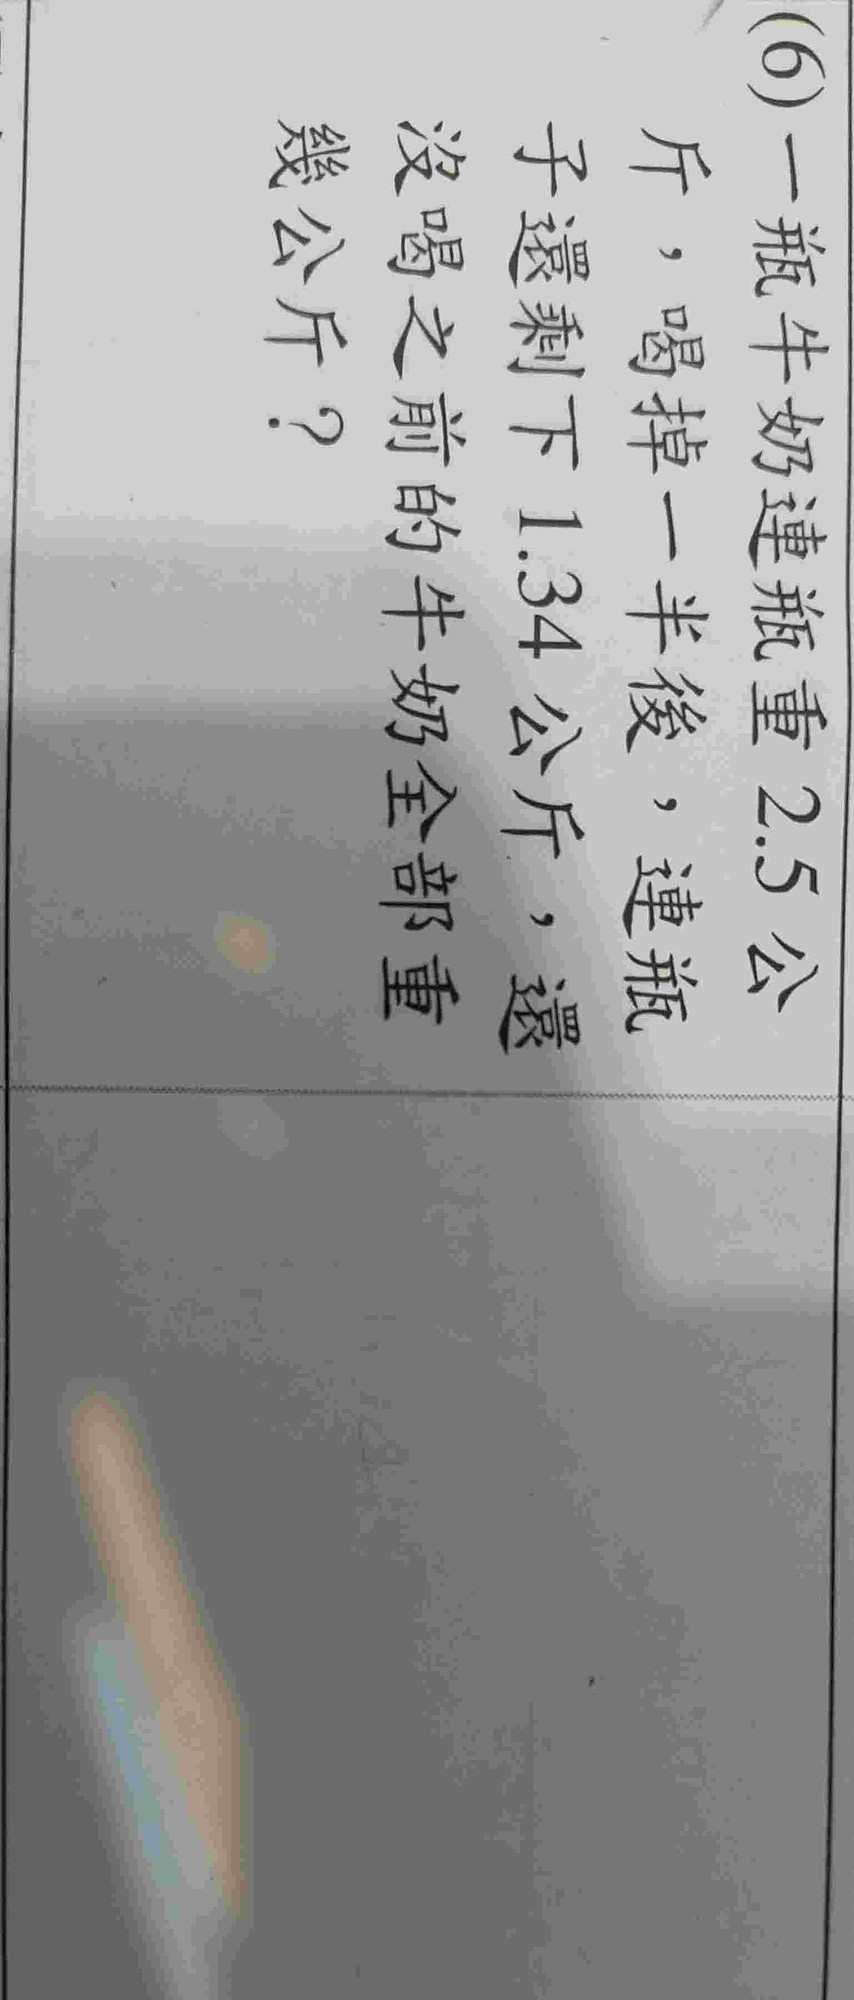 (6)一瓶牛奶連瓶重 2.5 公
斤，喝掉一半後，連瓶
子還剩下 1.34 公斤，還
沒喝之前的牛奶全部重
幾公斤？